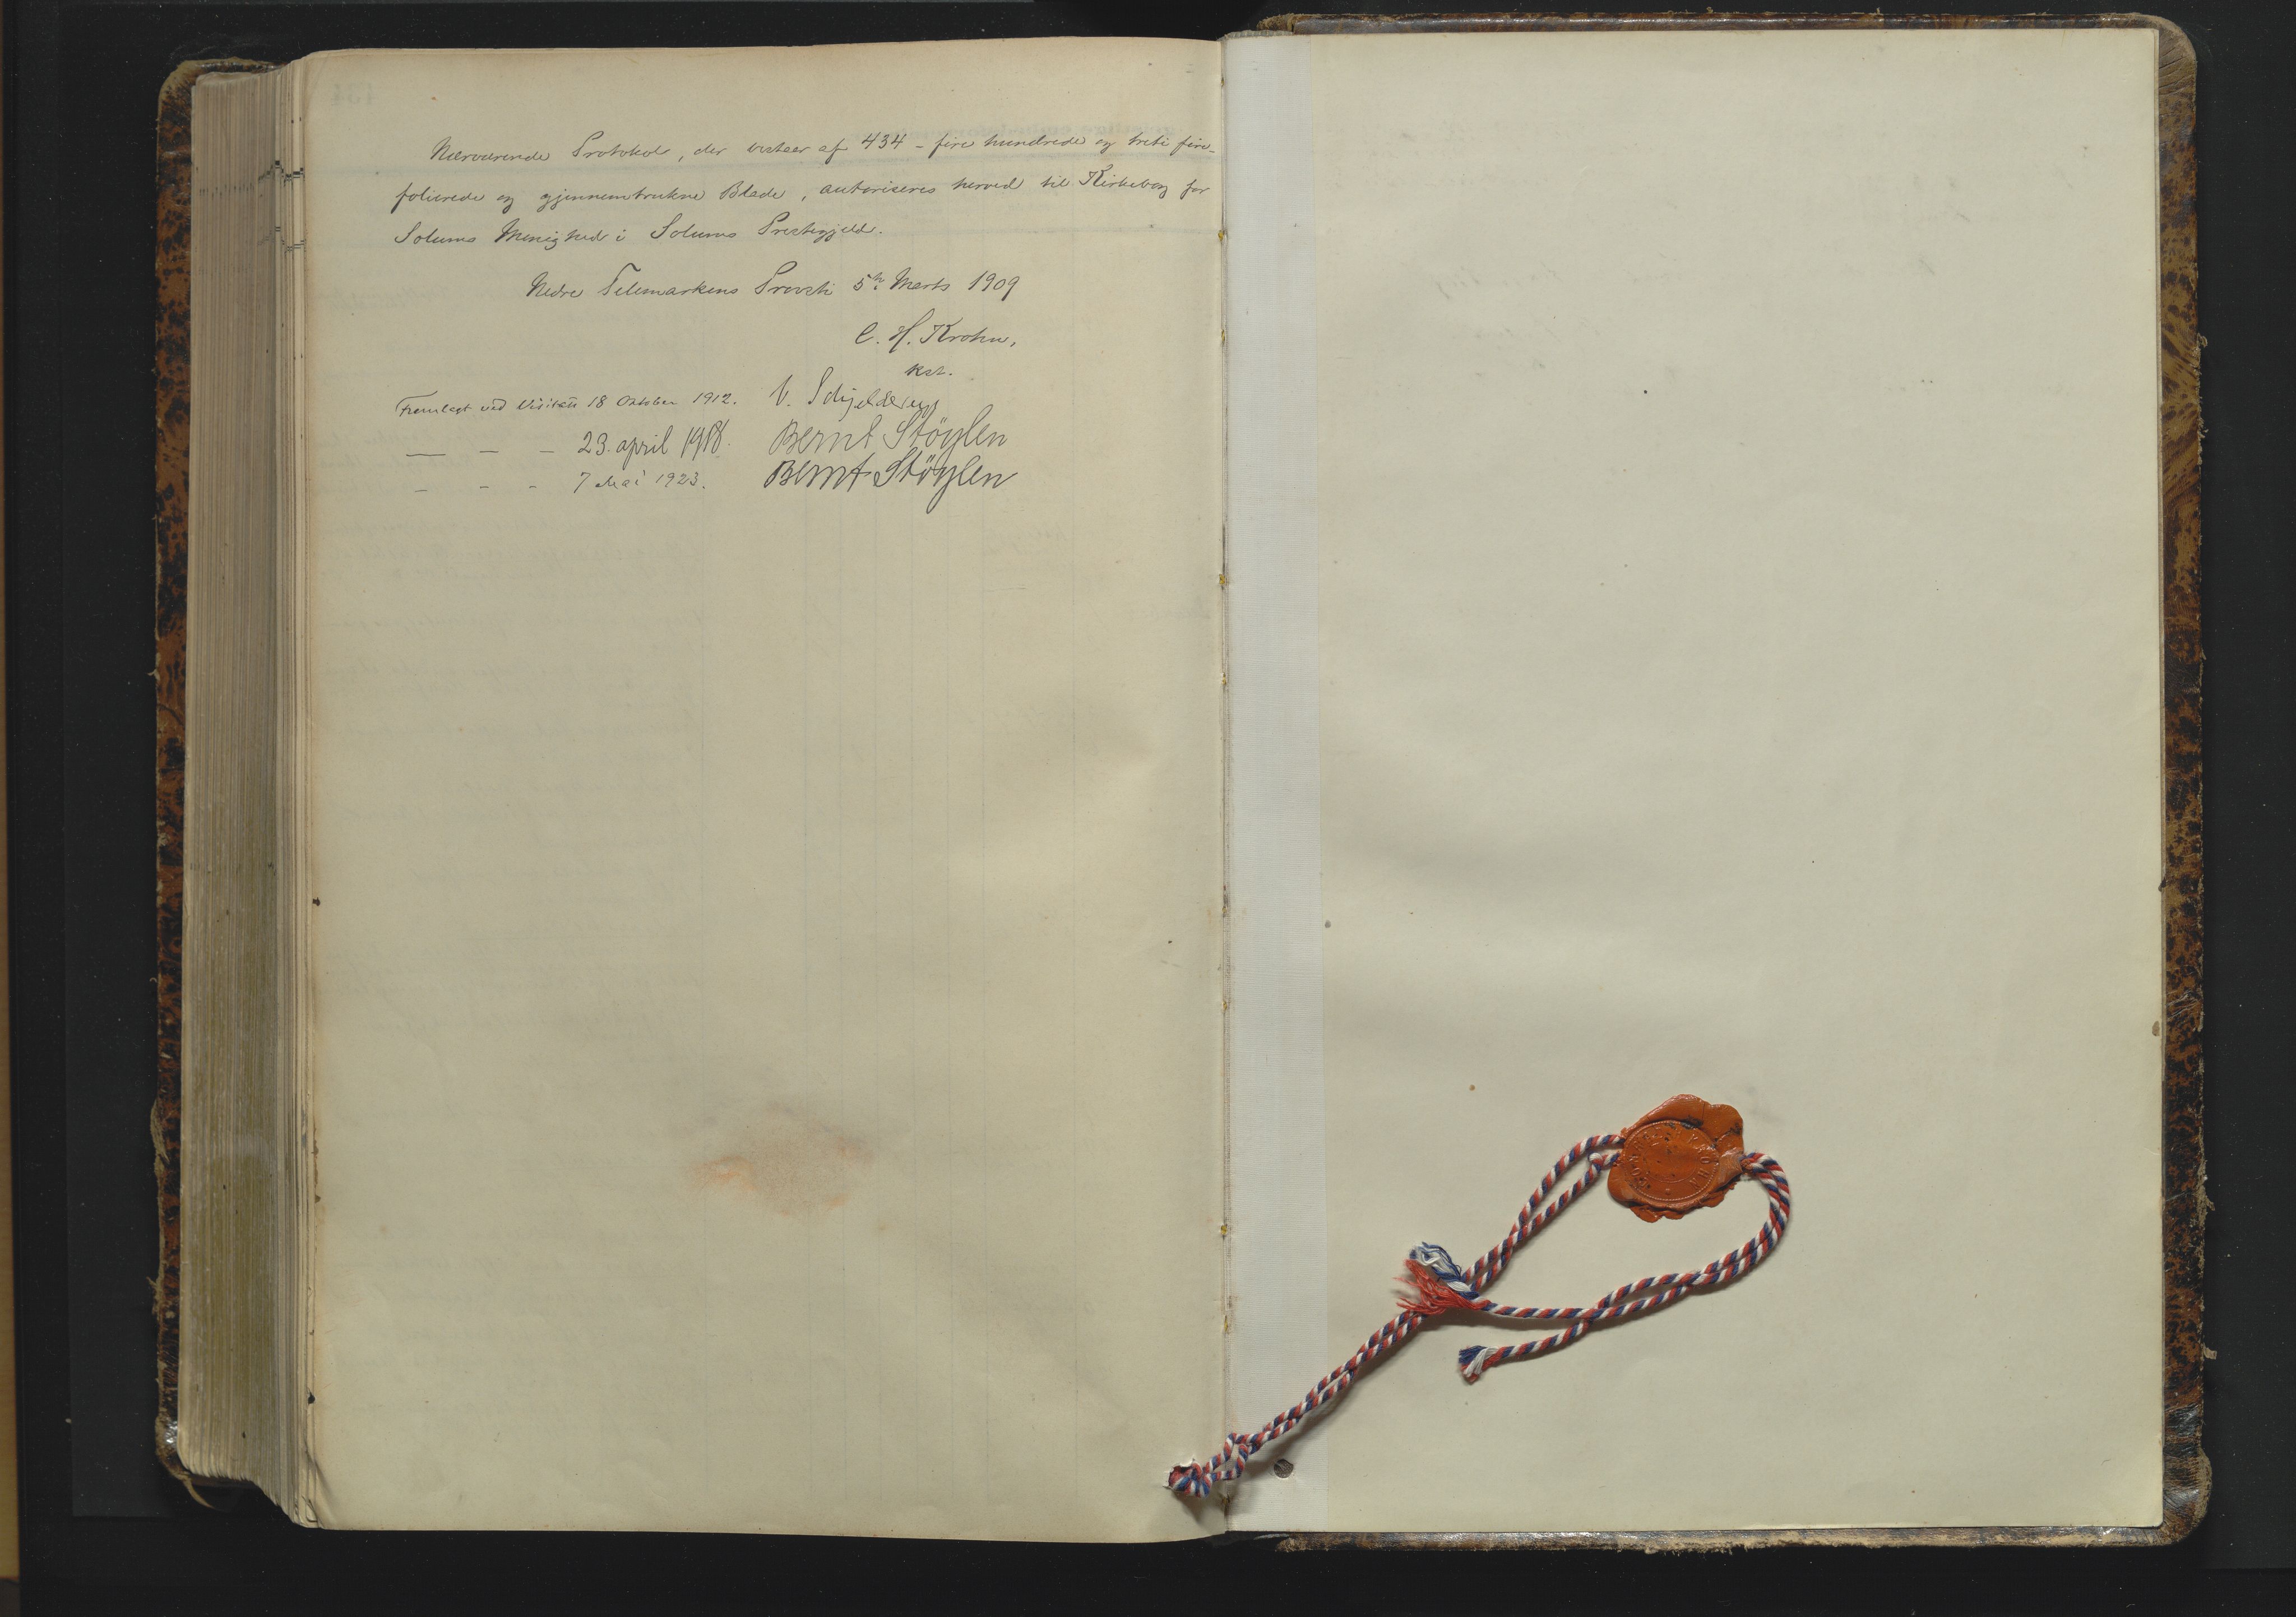 Nærværende Protokol, der bestaar af 434 – fire hundrede og treti fire –
folierede og gjennemtrukne Blade, autoriseres herved til Kirkebog for
Solums Menighed i Solums Prestegjeld.
Nedre Telemarkens Provsti 5te Marts 1909
C. H. Krohn,
kst.
Fremlagt ved Visitats 18 Oktober 1912. V. Schjelderup
— – – 23. april 1918. Bernt Støylen
– – – 7 Mai 1923. Bernt Støylen
KROHN